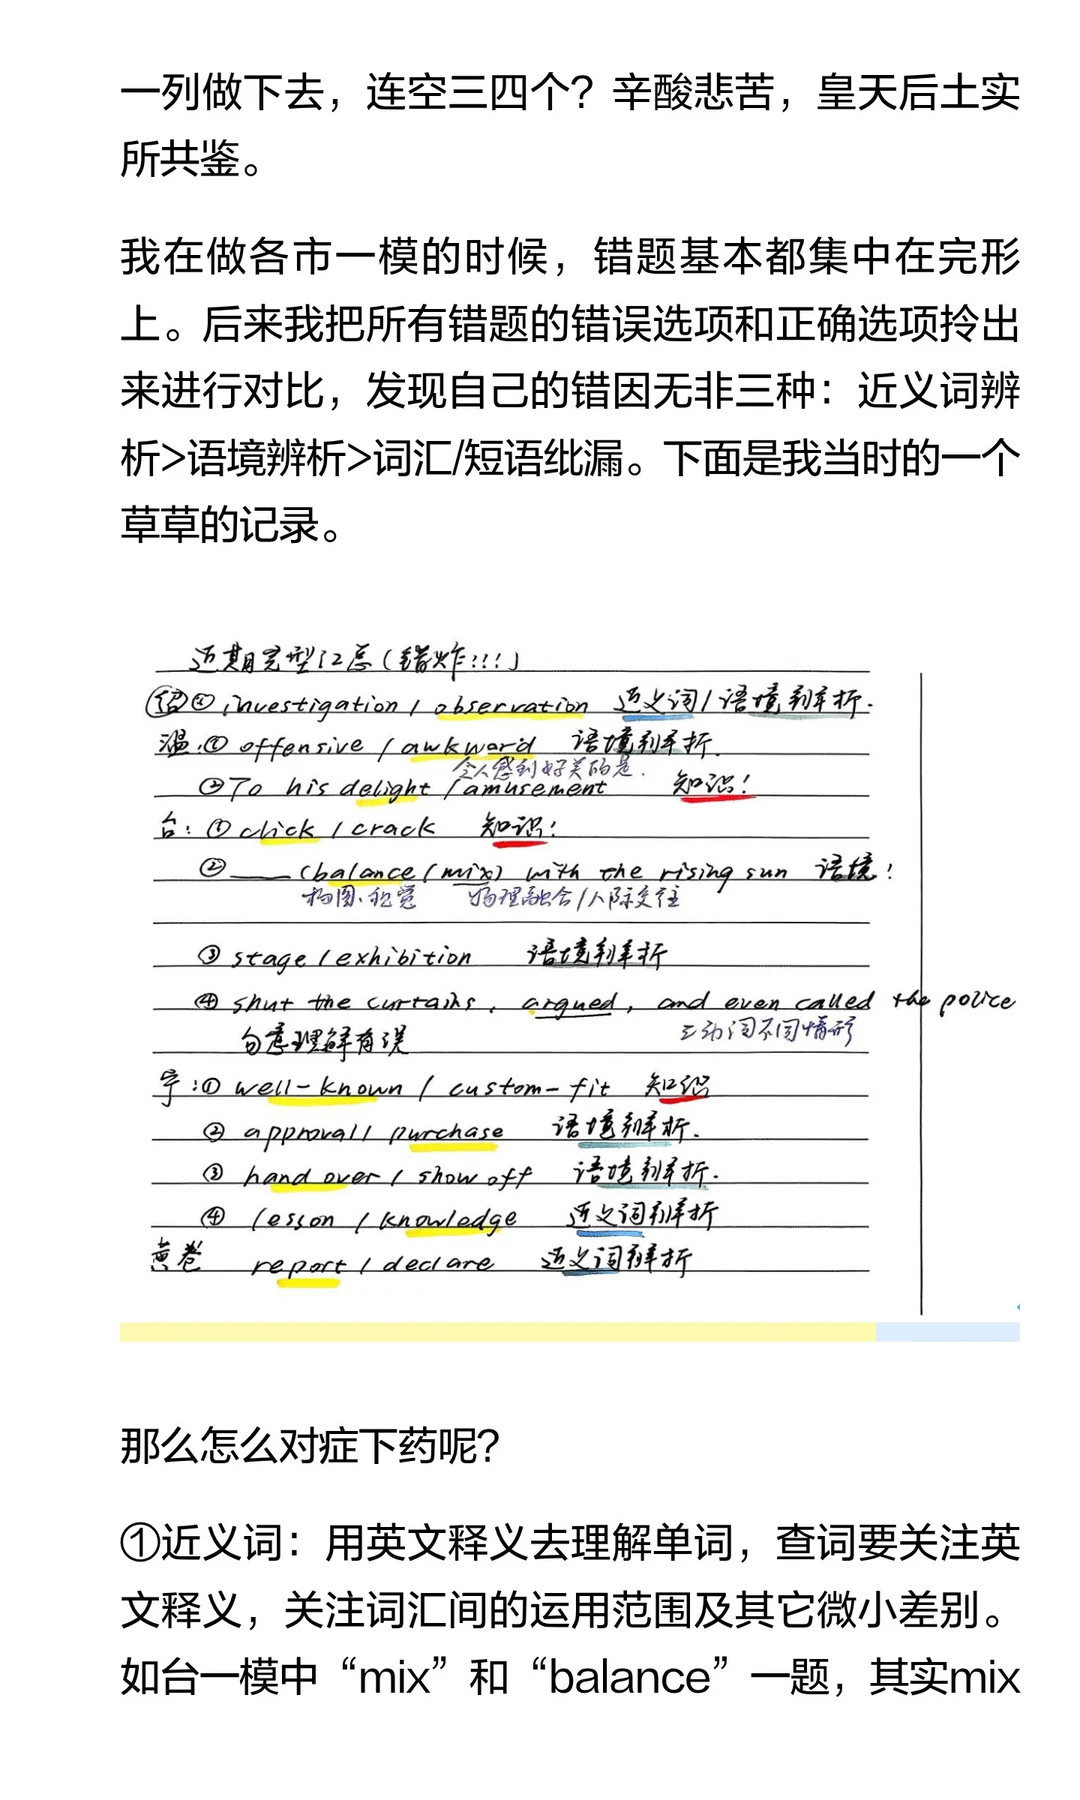 一列做下去，连空三四个？辛酸悲苦，皇天后土实
所共鉴。
我在做各市一模的时候，错题基本都集中在完形
上。后来我把所有错题的错误选项和正确选项拎出
来进行对比，发现自己的错因无非三种：近义词辨
析>语境辨析>词汇/短语纰漏。下面是我当时的一个
草草的记录。
近期完型汇总（错炸!!!）
绍④ investigation / observation 近义词/语境辨析.
温:① offensive / awkward 语境辨析.
令人感到好笑的是.
②To his delight / amusement 知识!
台:①click / crack 知识!
②____(balance / mix) with the rising sun 语境!
构图、视觉 物理融合/人际交往
③ stage / exhibition 语境辨析
④ shut the curtains, argued, and even called the police
句意理解有误 三动词不同情形
宁:① well-known / custom-fit 知识
② approval / purchase 语境辨析.
③ hand over / show off 语境辨析.
④ lesson / knowledge 近义词辨析
黄卷 report / declare 近义词辨析
那么怎么对症下药呢？
①近义词：用英文释义去理解单词，查词要关注英
文释义，关注词汇间的运用范围及其它微小差别。
如台一模中“mix”和“balance”一题，其实mix